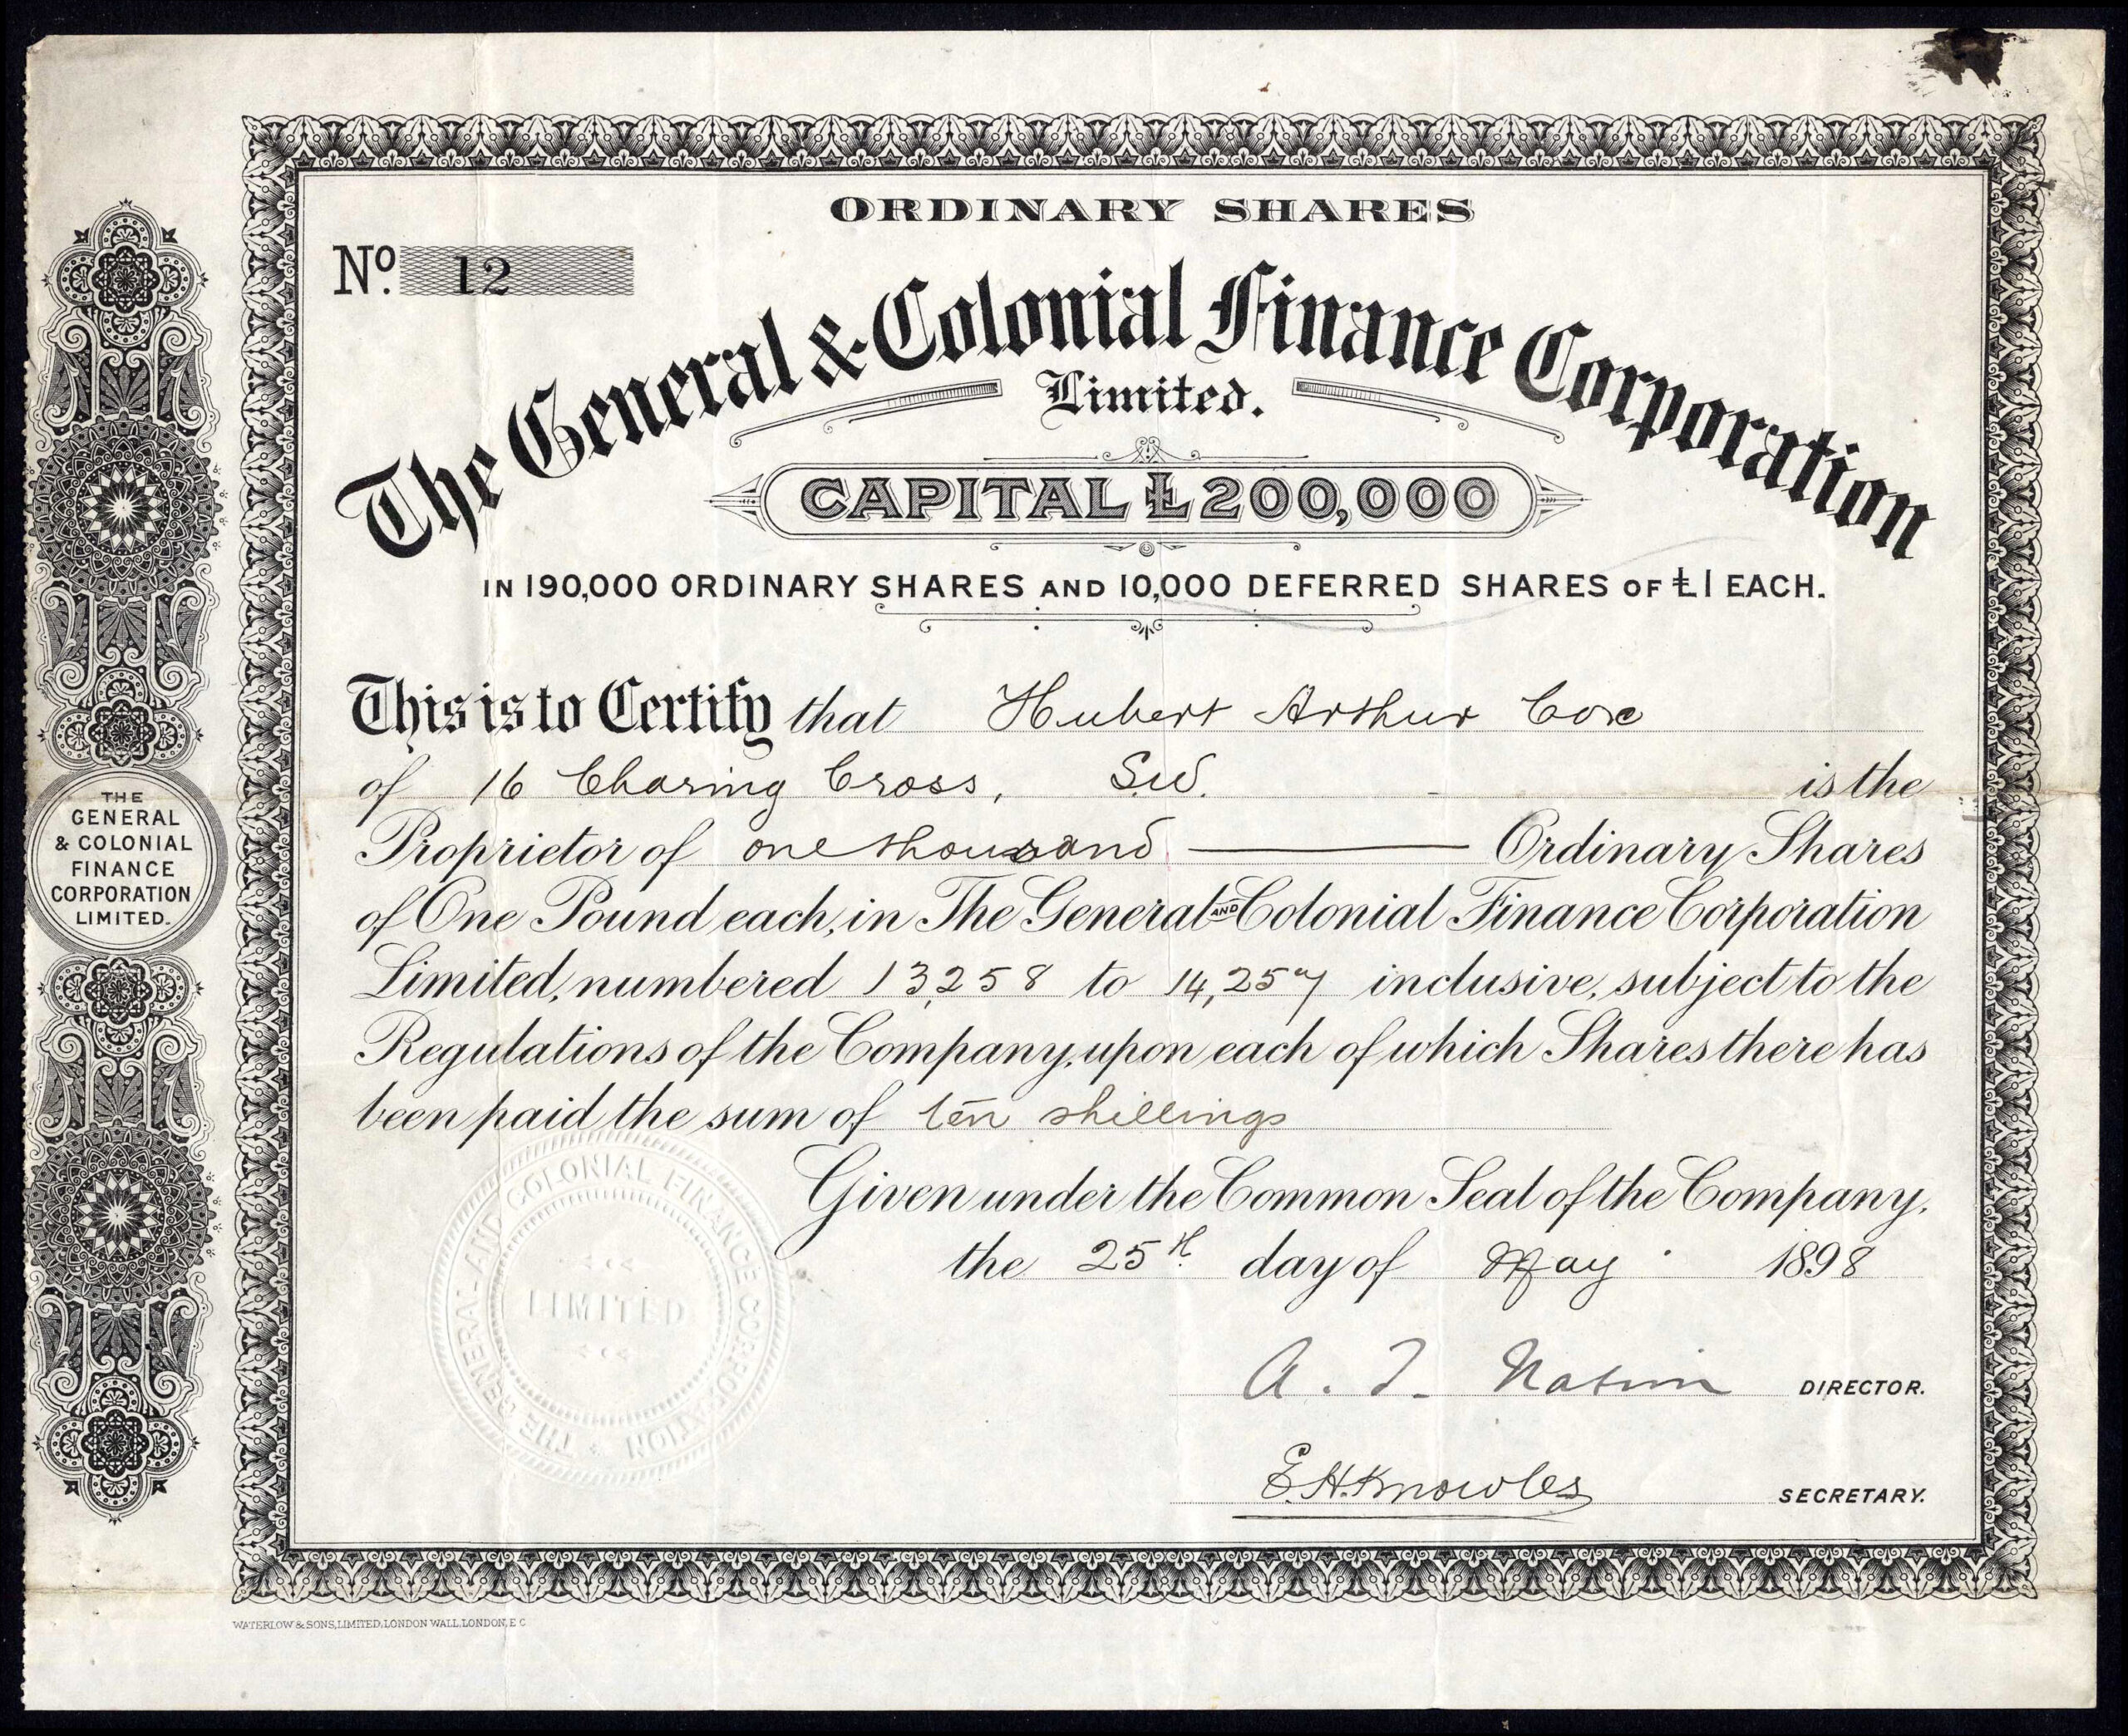 ORDINARY SHARES
No. 12
The General & Colonial Finance Corporation
Limited.
CAPITAL £200,000
IN 190,000 ORDINARY SHARES AND 10,000 DEFERRED SHARES OF £1 EACH.
This is to Certify that Hubert Arthur Cox
of 16 Charing Cross, S.W. is the
Proprietor of one thousand Ordinary Shares
of One Pound each, in The General AND Colonial Finance Corporation
Limited, numbered 13,258 to 14,257 inclusive, subject to the
Regulations of the Company, upon each of which Shares there has
been paid the sum of ten shillings
Given under the Common Seal of the Company,
the 25th day of May 1898
A. DIRECTOR.
E. H. Knowles SECRETARY.
THE
GENERAL
& COLONIAL
FINANCE
CORPORATION
LIMITED.
THE GENERAL AND COLONIAL FINANCE CORPORATION
LIMITED
WATERLOW & SONS, LIMITED, LONDON WALL, LONDON, E C